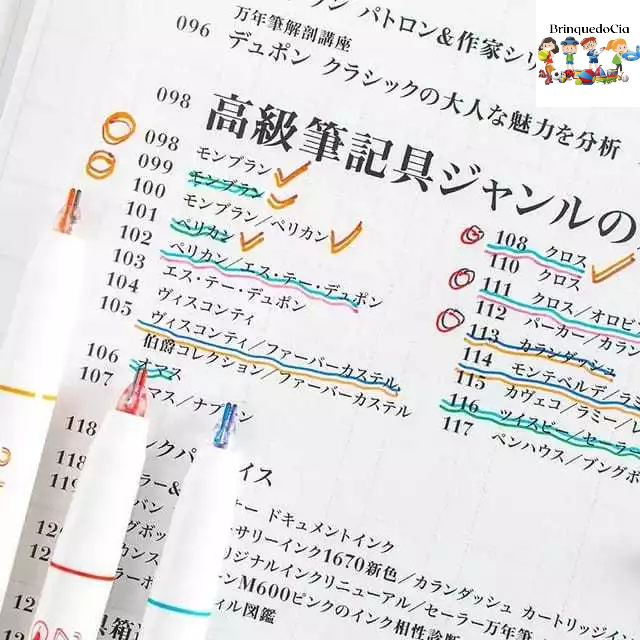 BrinquedoCia
パトロン&作家シリ
万年筆解剖講座
096 デュポン クラシックの大人な魅力を分析
098 高級筆記具ジャンルの
098 モンブラン
099 モンブラン
100 モンブラン/ペリカン
101 ペリカン
102 ペリカン/エス・テー・デュポン
103 エス・テー・デュポン
104 ヴィスコンティ
105 ヴィスコンティ/ファーバーカステル
伯爵コレクション/ファーバーカステル
106 オマス
107 マス/ナ
108 クロス
110 クロス
111 クロス/オロビ
112 パーカー/カラン
113 カランダッシュ
114 モンテベルデ/ラミ
115 カヴェコ/ラミー/レ
116 ツイスビー/セーラー
117 ペンハウス/ブングボ
118
118
119
ドキュメントインク
サリーインク1670新色/カランダッシュ カートリッジイ
リジナルインクリニューアル/セーラー万年筆
M600ピンクのインク相性診断
イル図鑑